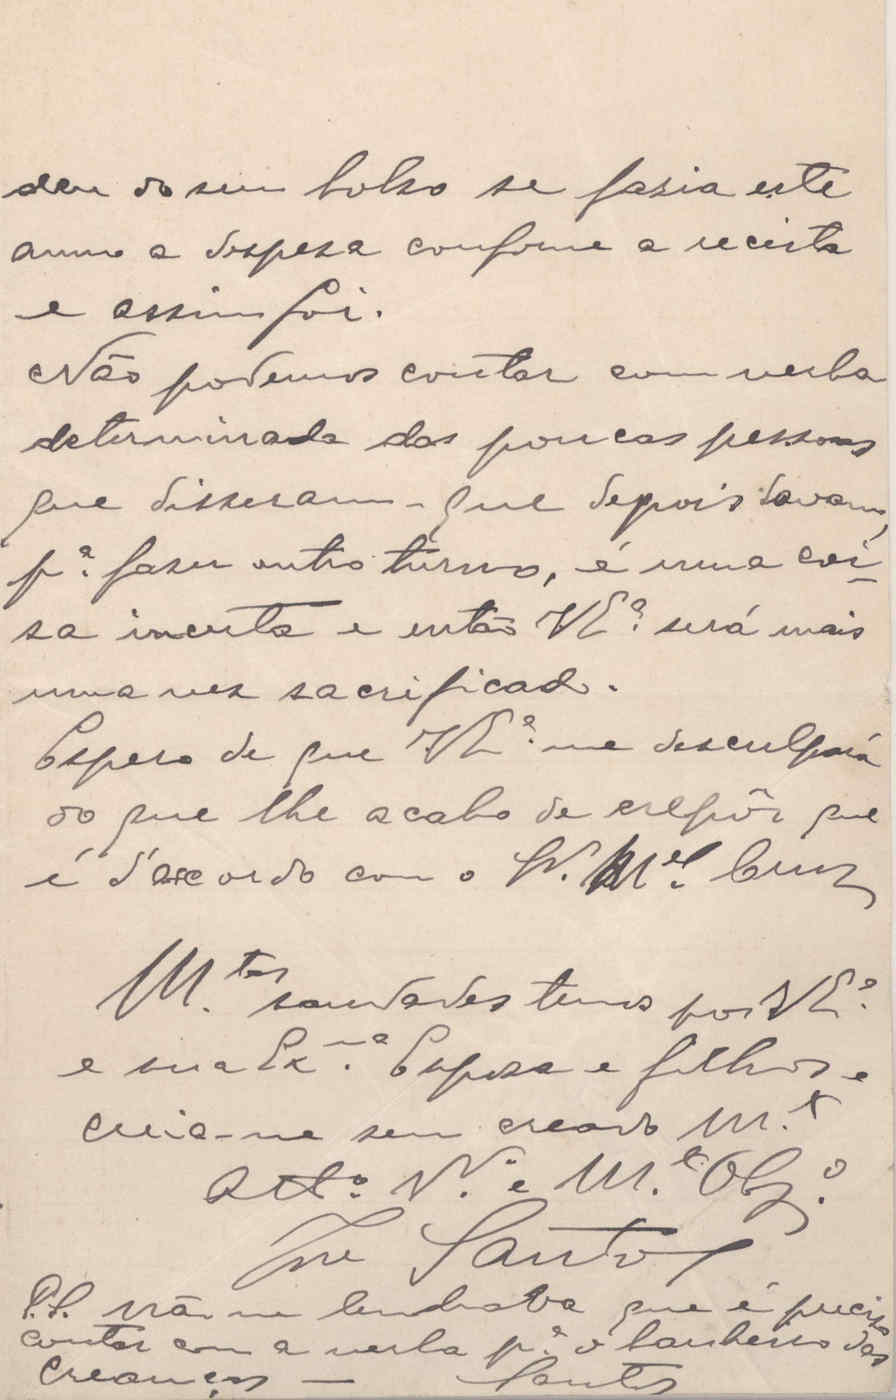 deu do seu bolso se fasia este
anno a despesa conforme a receita
e assim foi.
Não podemos contar com verba
determinada das poucas pessoas
que disseram - que depois davam,
pª. faser outro turno, é uma coi-
sa incerta e então VEª. será mais
uma ves sacrificado.
Espero de que VEª. me desculpará
do que lhe acabo de expôr que
é d'accordo com o Sr. Mel. Cruz
M.tas saudades temos por VEª.
e sua Ex.ma Esposa e filhos e
creia-me seu creado M.t
Att.º V.or e M.t Obg.º
José Santos
P.S. não me lembrava que é preciso
contar com a verba pª. o banheiro das
creanças —
Santos